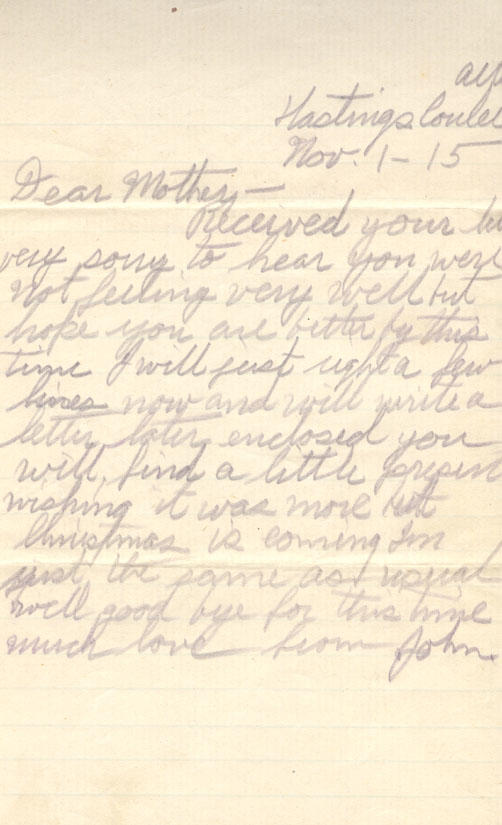 Hastings
Nov. 1-15
Dear Mother,—
Received your
very sorry to hear you were
not feeling very well but
hope you are better by this
time I will just right a few
lines now and will write a
letter later enclosed you
will find a little present
wishing it was more but
Christmas is coming Im
just the same as usual
well good bye for this time
much love from John.